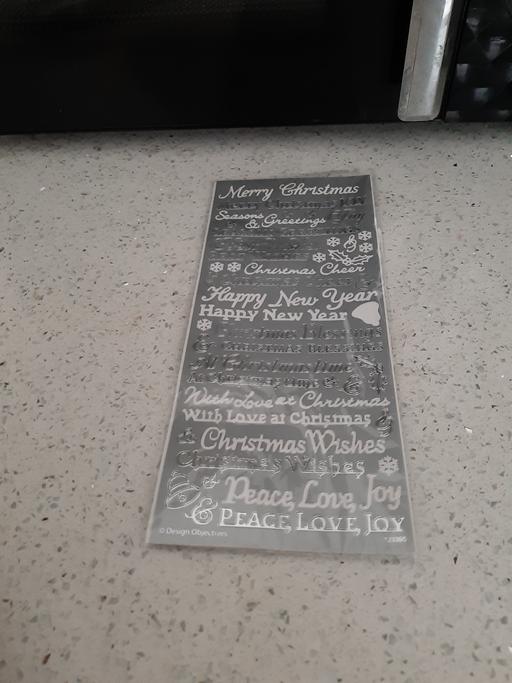 Merry Christmas
Seasons
& Greetings
Christmas Cheer
Happy New Year
Happy New Year
Christmas Blessings
& Christmas Blessings
At Christmas time
At Christmas time &
With Love at Christmas
With Love at Christmas
& Christmas Wishes
Christmas Wishes
Peace, Love, Joy
& Peace, Love, Joy
© Design Objectives